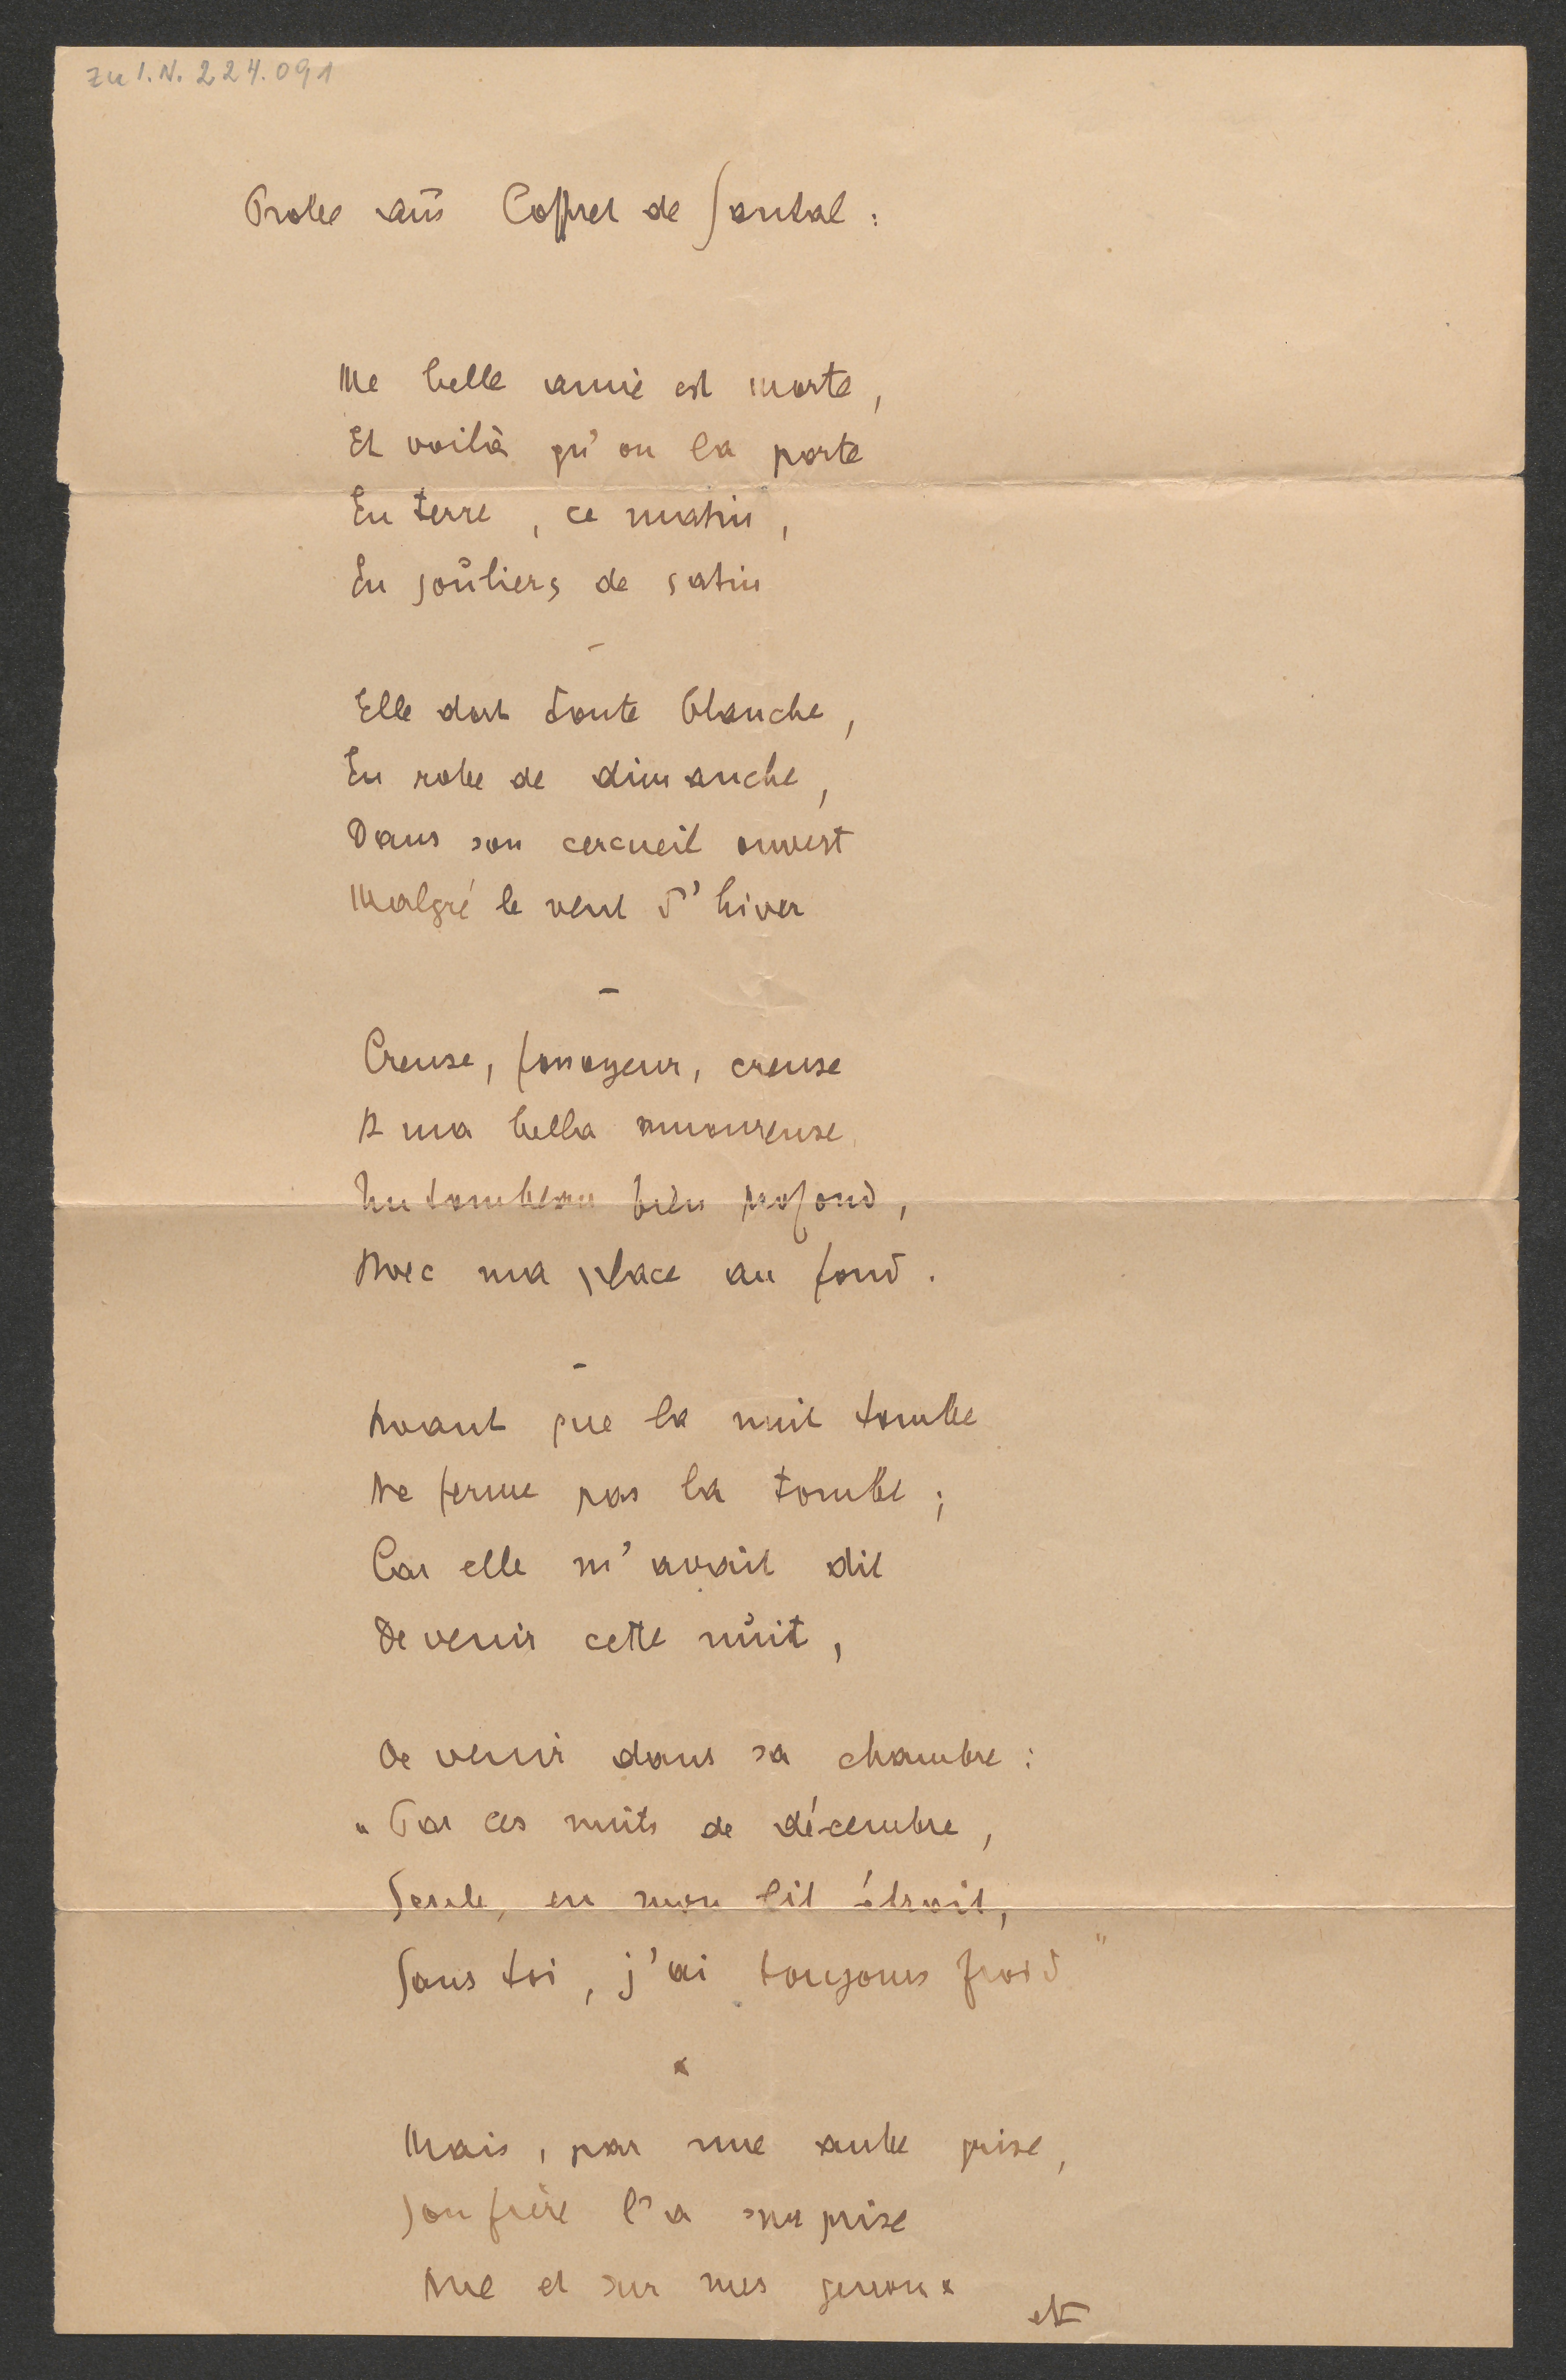 zu I.N. 224.091
Probe aus Coffret de Santal:
Me belle amie est morte,
Et voilà qu'on la porte
En terre, ce matin,
En souliers de satin
–
Elle dort toute blanche,
En robe de dimanche,
Dans son cercueil ouvert
Malgré le vent d'hiver
–
Creuse, fossoyeur, creuse
A ma bella amoureuse
Un tombeau bien profond,
Avec ma place au fond.
–
Avant que la nuit tombe
Ne ferme pas la tombe;
Car elle m'avait dit
De venir cette nuit,
De venir dans sa chambre:
"Par ces nuits de décembre,
Seule, en mon lit étroit,
Sans toi, j'ai toujours froid"
x
Mais, par une aube grise,
Son frère l'a surprise
Nue et sur mes genoux